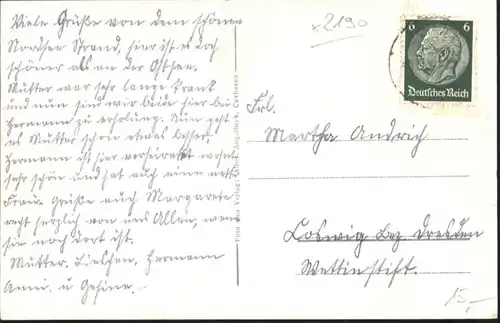 Viele Grüße von dem schönen
Nordsee Strand, hier ist es doch
schöner als an der Ostsee.
Mutter war sehr lange krank
und nun sind wir beide hier bei
Hermann zu erholung. Nun geht
es Mutter schon etwas besser.
Hermann ist hier verheiratet wohnt
sehr schön und hat auch eine nette
Frau. Grüße auch Margarete
recht herzlich von uns Allen, wenn
sie noch dort ist.
Mutter. Lieschen, Hermann
Anni. u Gesine.
Foto und Verlag: Cuxhaven
x2190
6 6
Deutsches Reich
Frl.
Martha Andrich
Coswig Bez Dresden
Wettinstift.
15,-